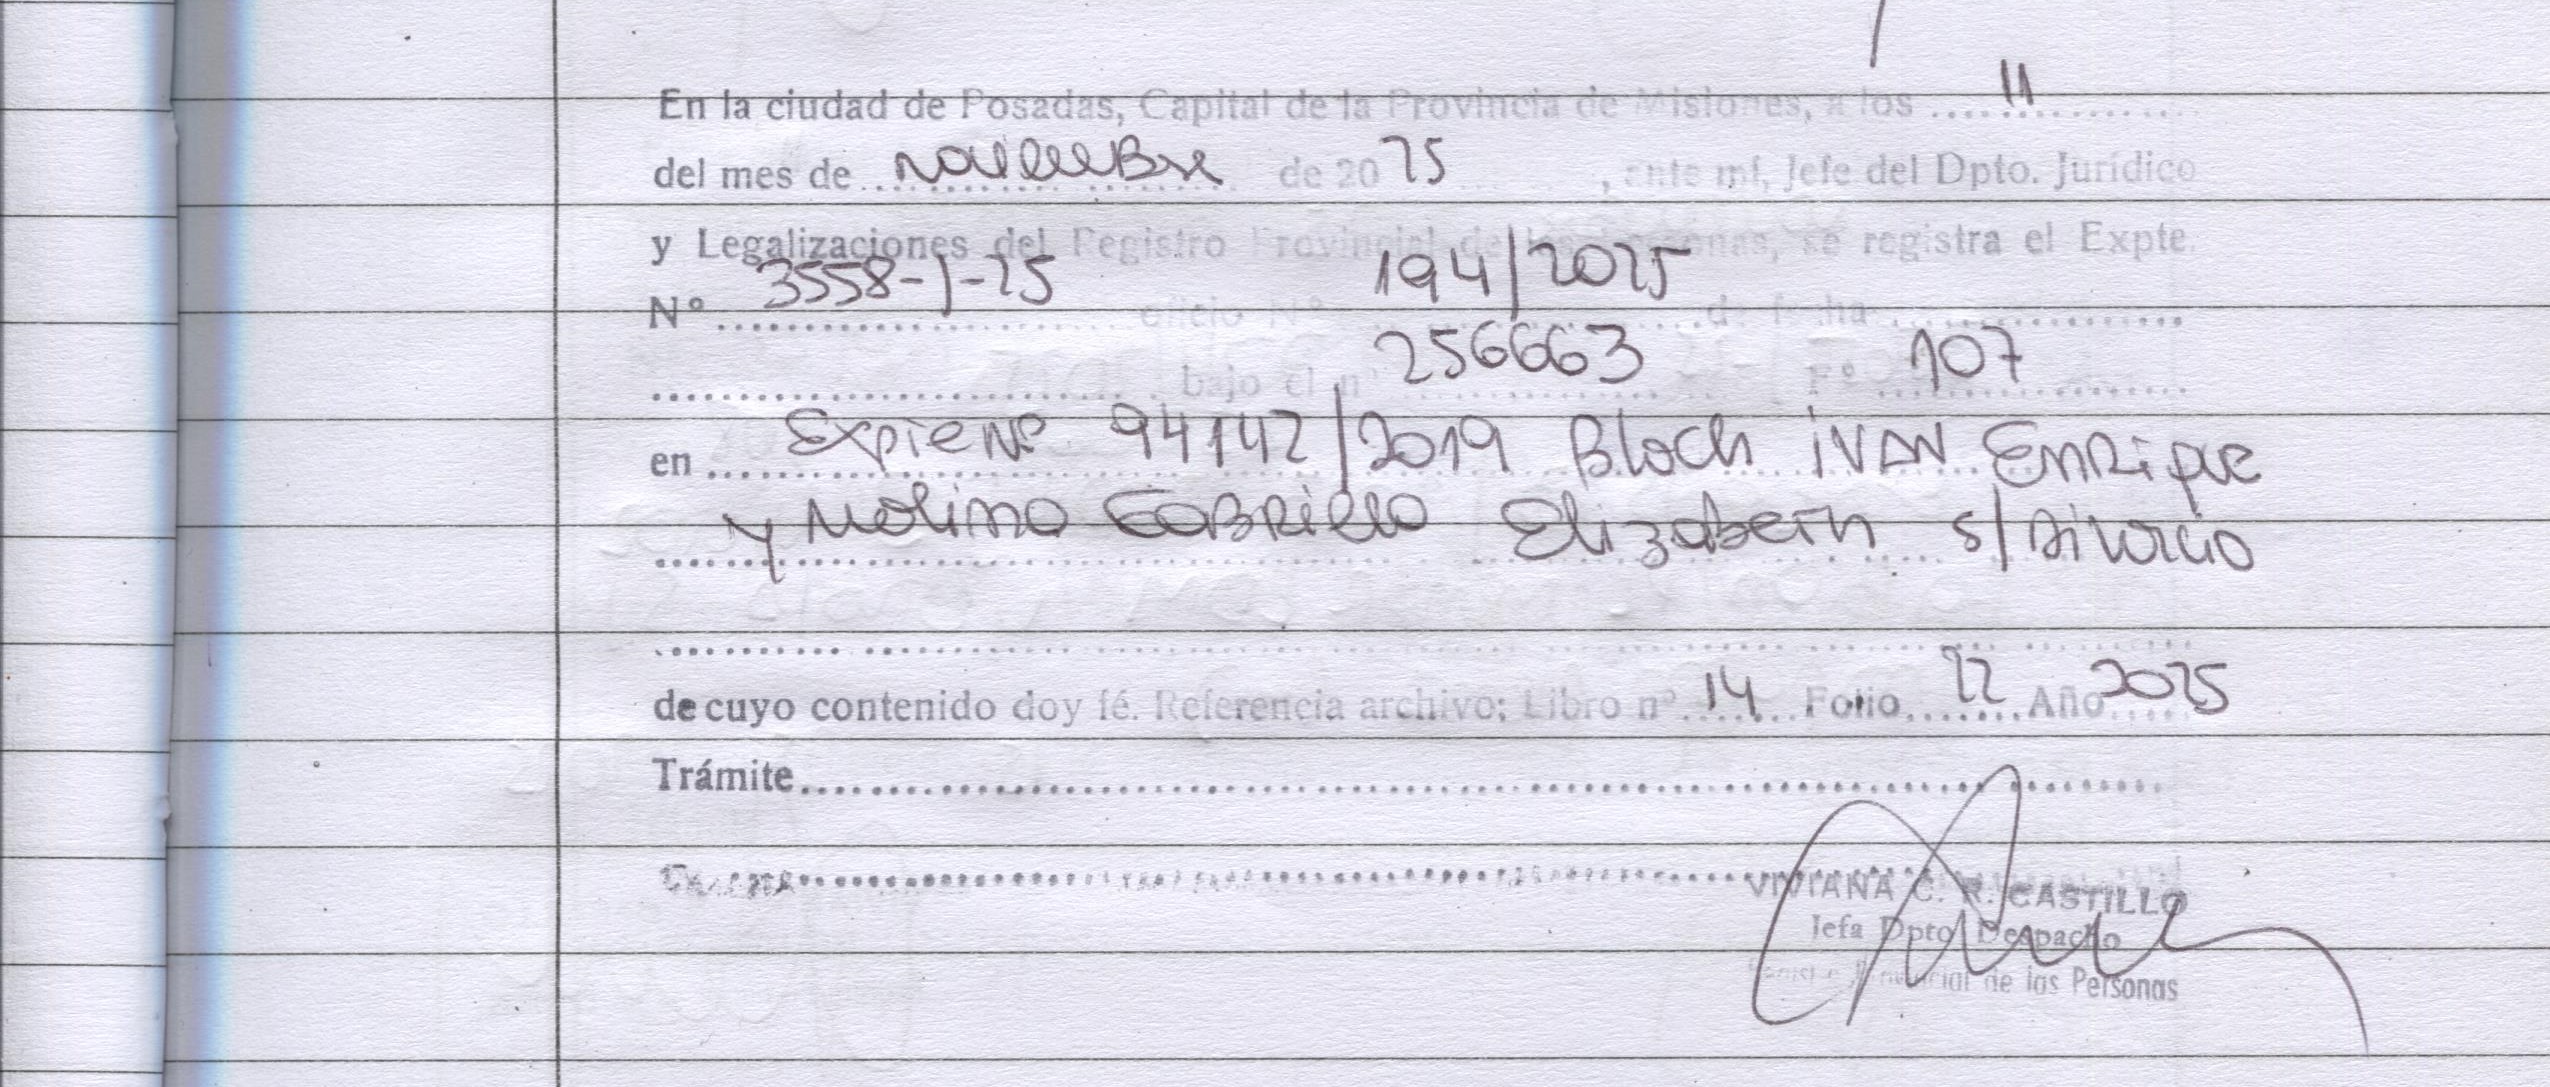 En la ciudad de Posadas, Capital de la Provincia de Misiones, a los 11
del mes de noviembre de 2025, ante mí, Jefe del Dpto. Jurídico
y Legalizaciones del Registro Provincial de las Personas, se registra el Expte.
Nº 3558-J-25 oficio Nº 194/2025 de fecha
bajo el nº 256663 Fº 107
en Expte Nº 94142/2019 Bloch iván Enrique
y Molina Gabriela Elizabeth s/Divorcio
de cuyo contenido doy fé. Referencia archivo: Libro nº 14 Folio 22 Año 2025
Trámite
VIVIANA C. R. CASTILLO
Jefa Dpto. Despacho
Registro Provincial de las Personas